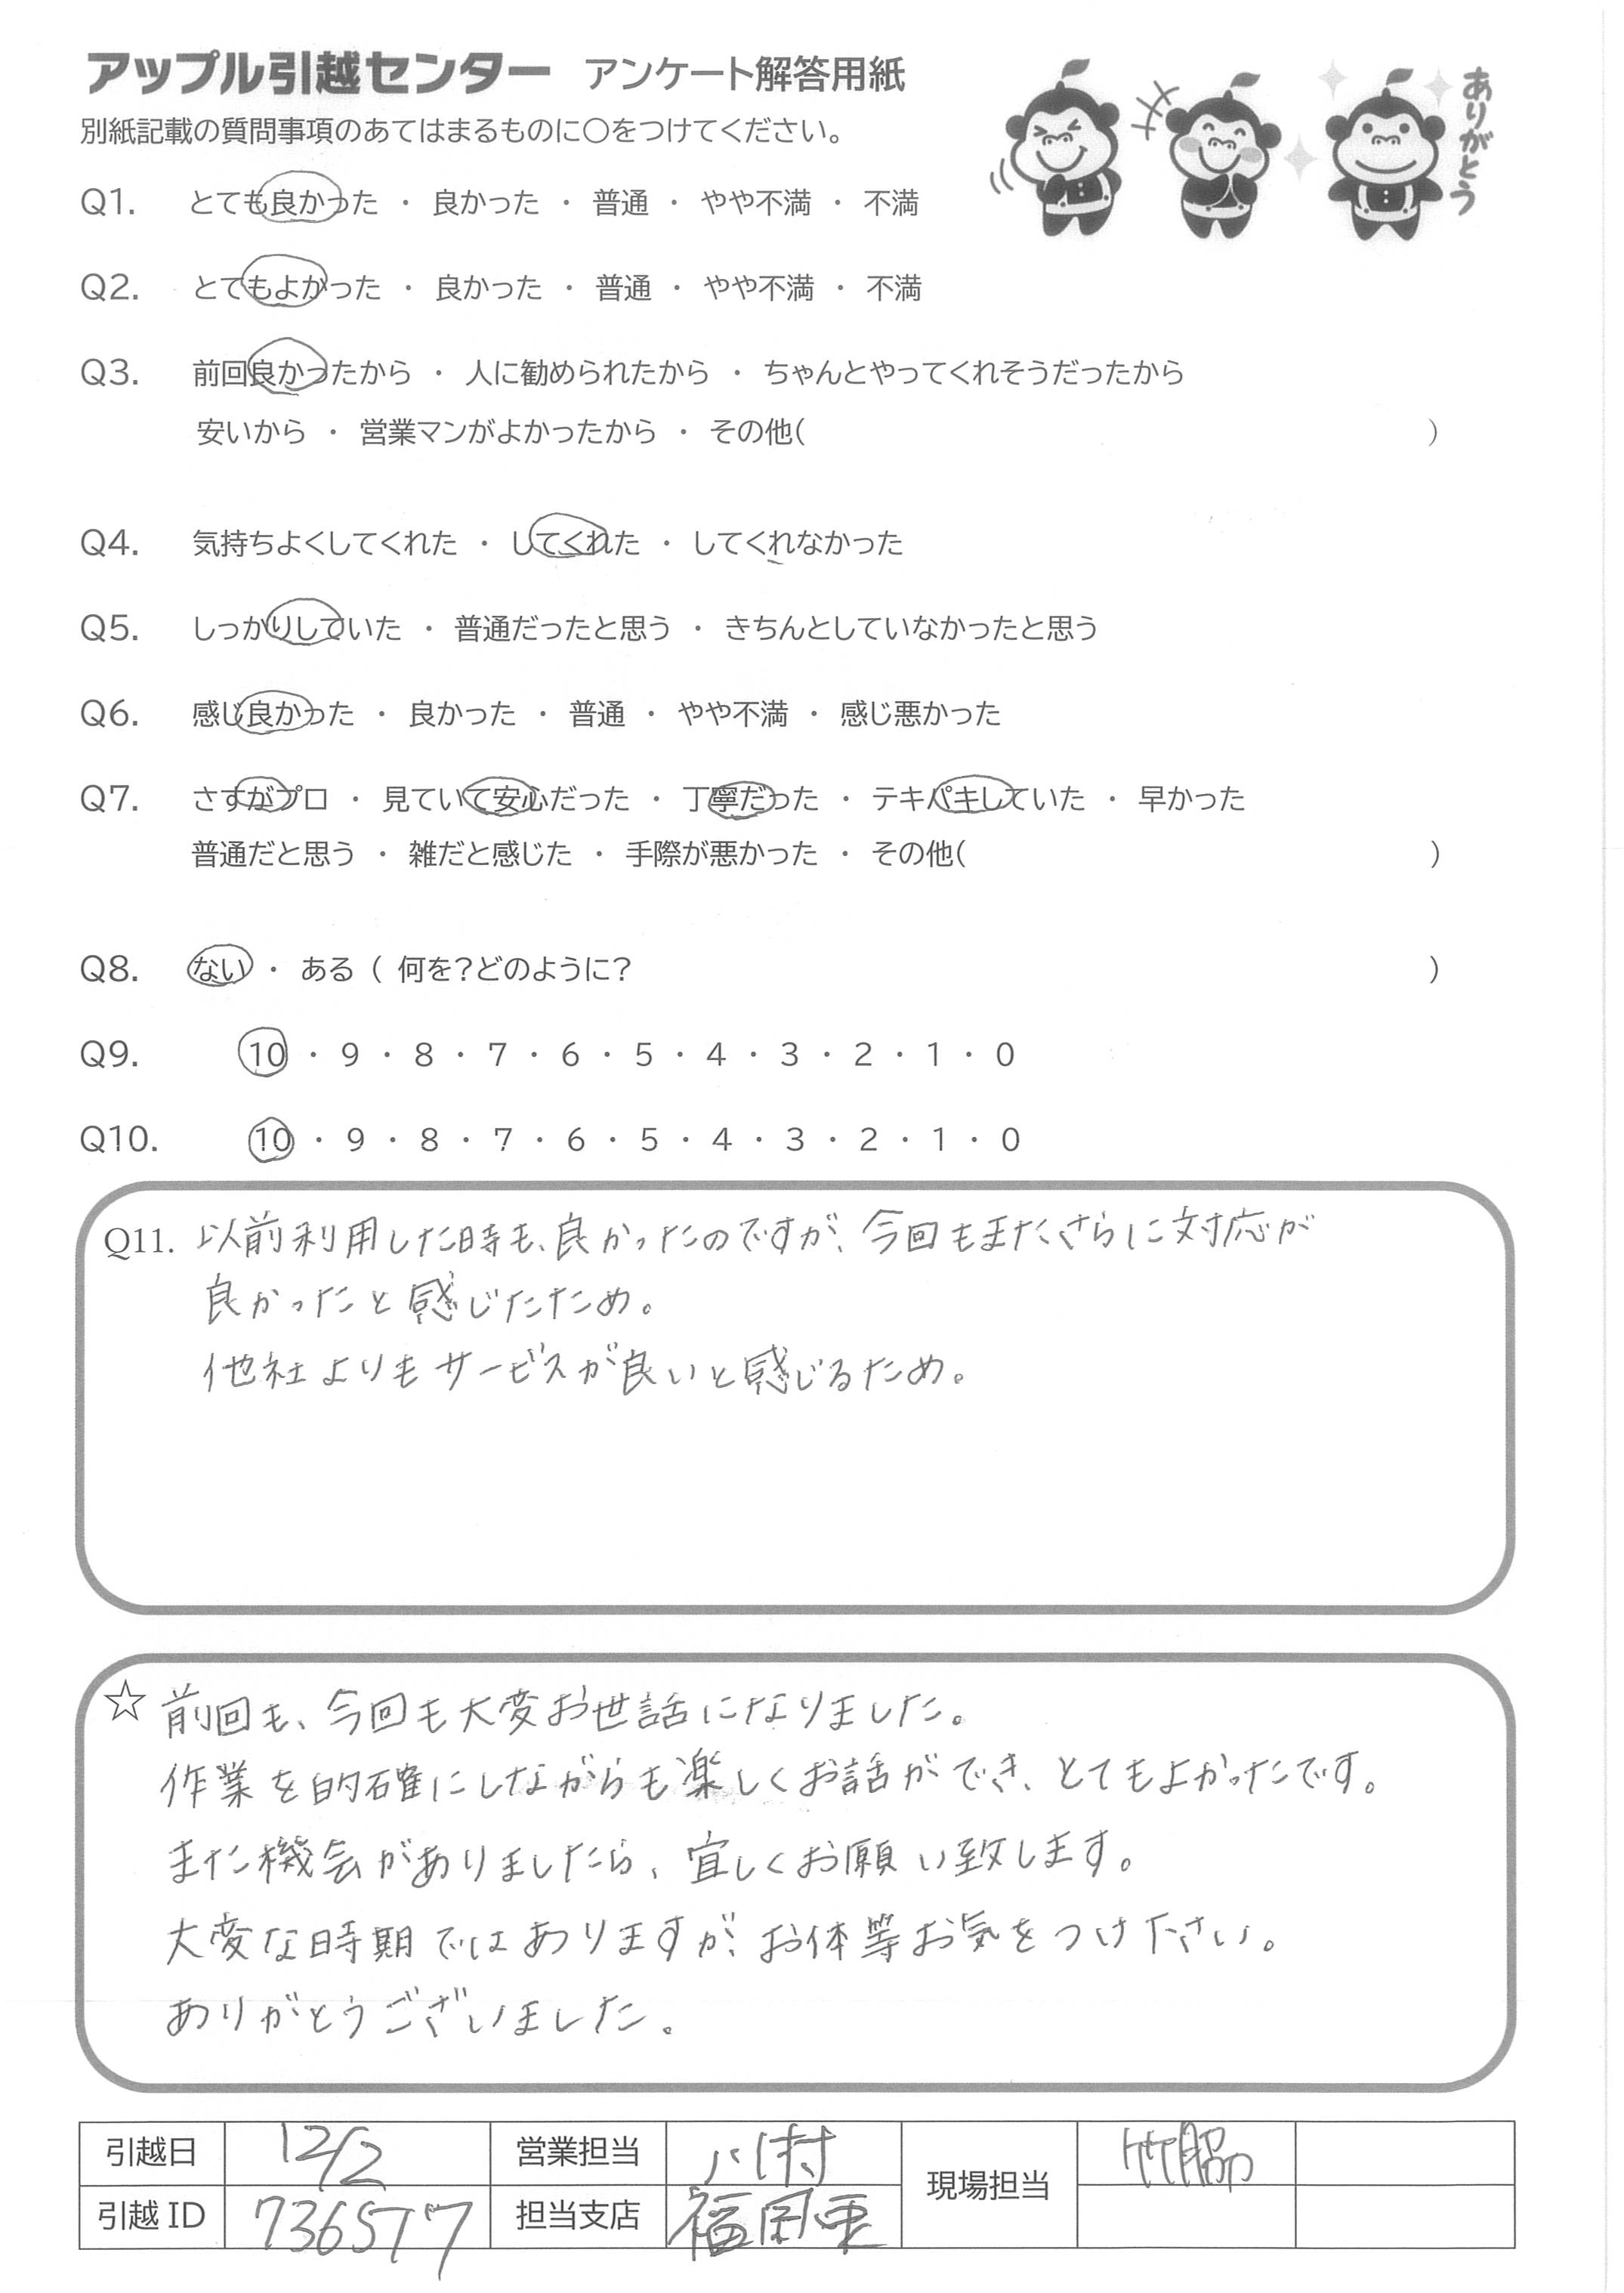 アップル引越センター アンケート解答用紙
別紙記載の質問事項のあてはまるものに〇をつけてください。
ありがとう
Q1. とても良かった ・ 良かった ・ 普通 ・ やや不満 ・ 不満
Q2. とてもよかった ・ 良かった ・ 普通 ・ やや不満 ・ 不満
Q3. 前回良かったから ・ 人に勧められたから ・ ちゃんとやってくれそうだったから
安いから ・ 営業マンがよかったから ・ その他( )
Q4. 気持ちよくしてくれた ・ してくれた ・ してくれなかった
Q5. しっかりしていた ・ 普通だったと思う ・ きちんとしていなかったと思う
Q6. 感じ良かった ・ 良かった ・ 普通 ・ やや不満 ・ 感じ悪かった
Q7. さすがプロ ・ 見ていて安心だった ・ 丁寧だった ・ テキパキしていた ・ 早かった
普通だと思う ・ 雑だと感じた ・ 手際が悪かった ・ その他( )
Q8. ない ・ ある ( 何を?どのように? )
Q9. 10 ・ 9 ・ 8 ・ 7 ・ 6 ・ 5 ・ 4 ・ 3 ・ 2 ・ 1 ・ 0
Q10. 10 ・ 9 ・ 8 ・ 7 ・ 6 ・ 5 ・ 4 ・ 3 ・ 2 ・ 1 ・ 0
Q11. 以前利用した時も、良かったのですが、今回もまたさらに対応が
良かったと感じたため。
他社よりもサービスが良いと感じるため。
☆ 前回も、今回も大変お世話になりました。
作業を的確にしながらも楽しくお話ができ、とてもよかったです。
また機会がありましたら、宜しくお願い致します。
大変な時期ではありますが、お体等お気をつけ下さい。
ありがとうございました。
引越日 12/2 営業担当 現場担当 竹脇
引越ID 担当支店